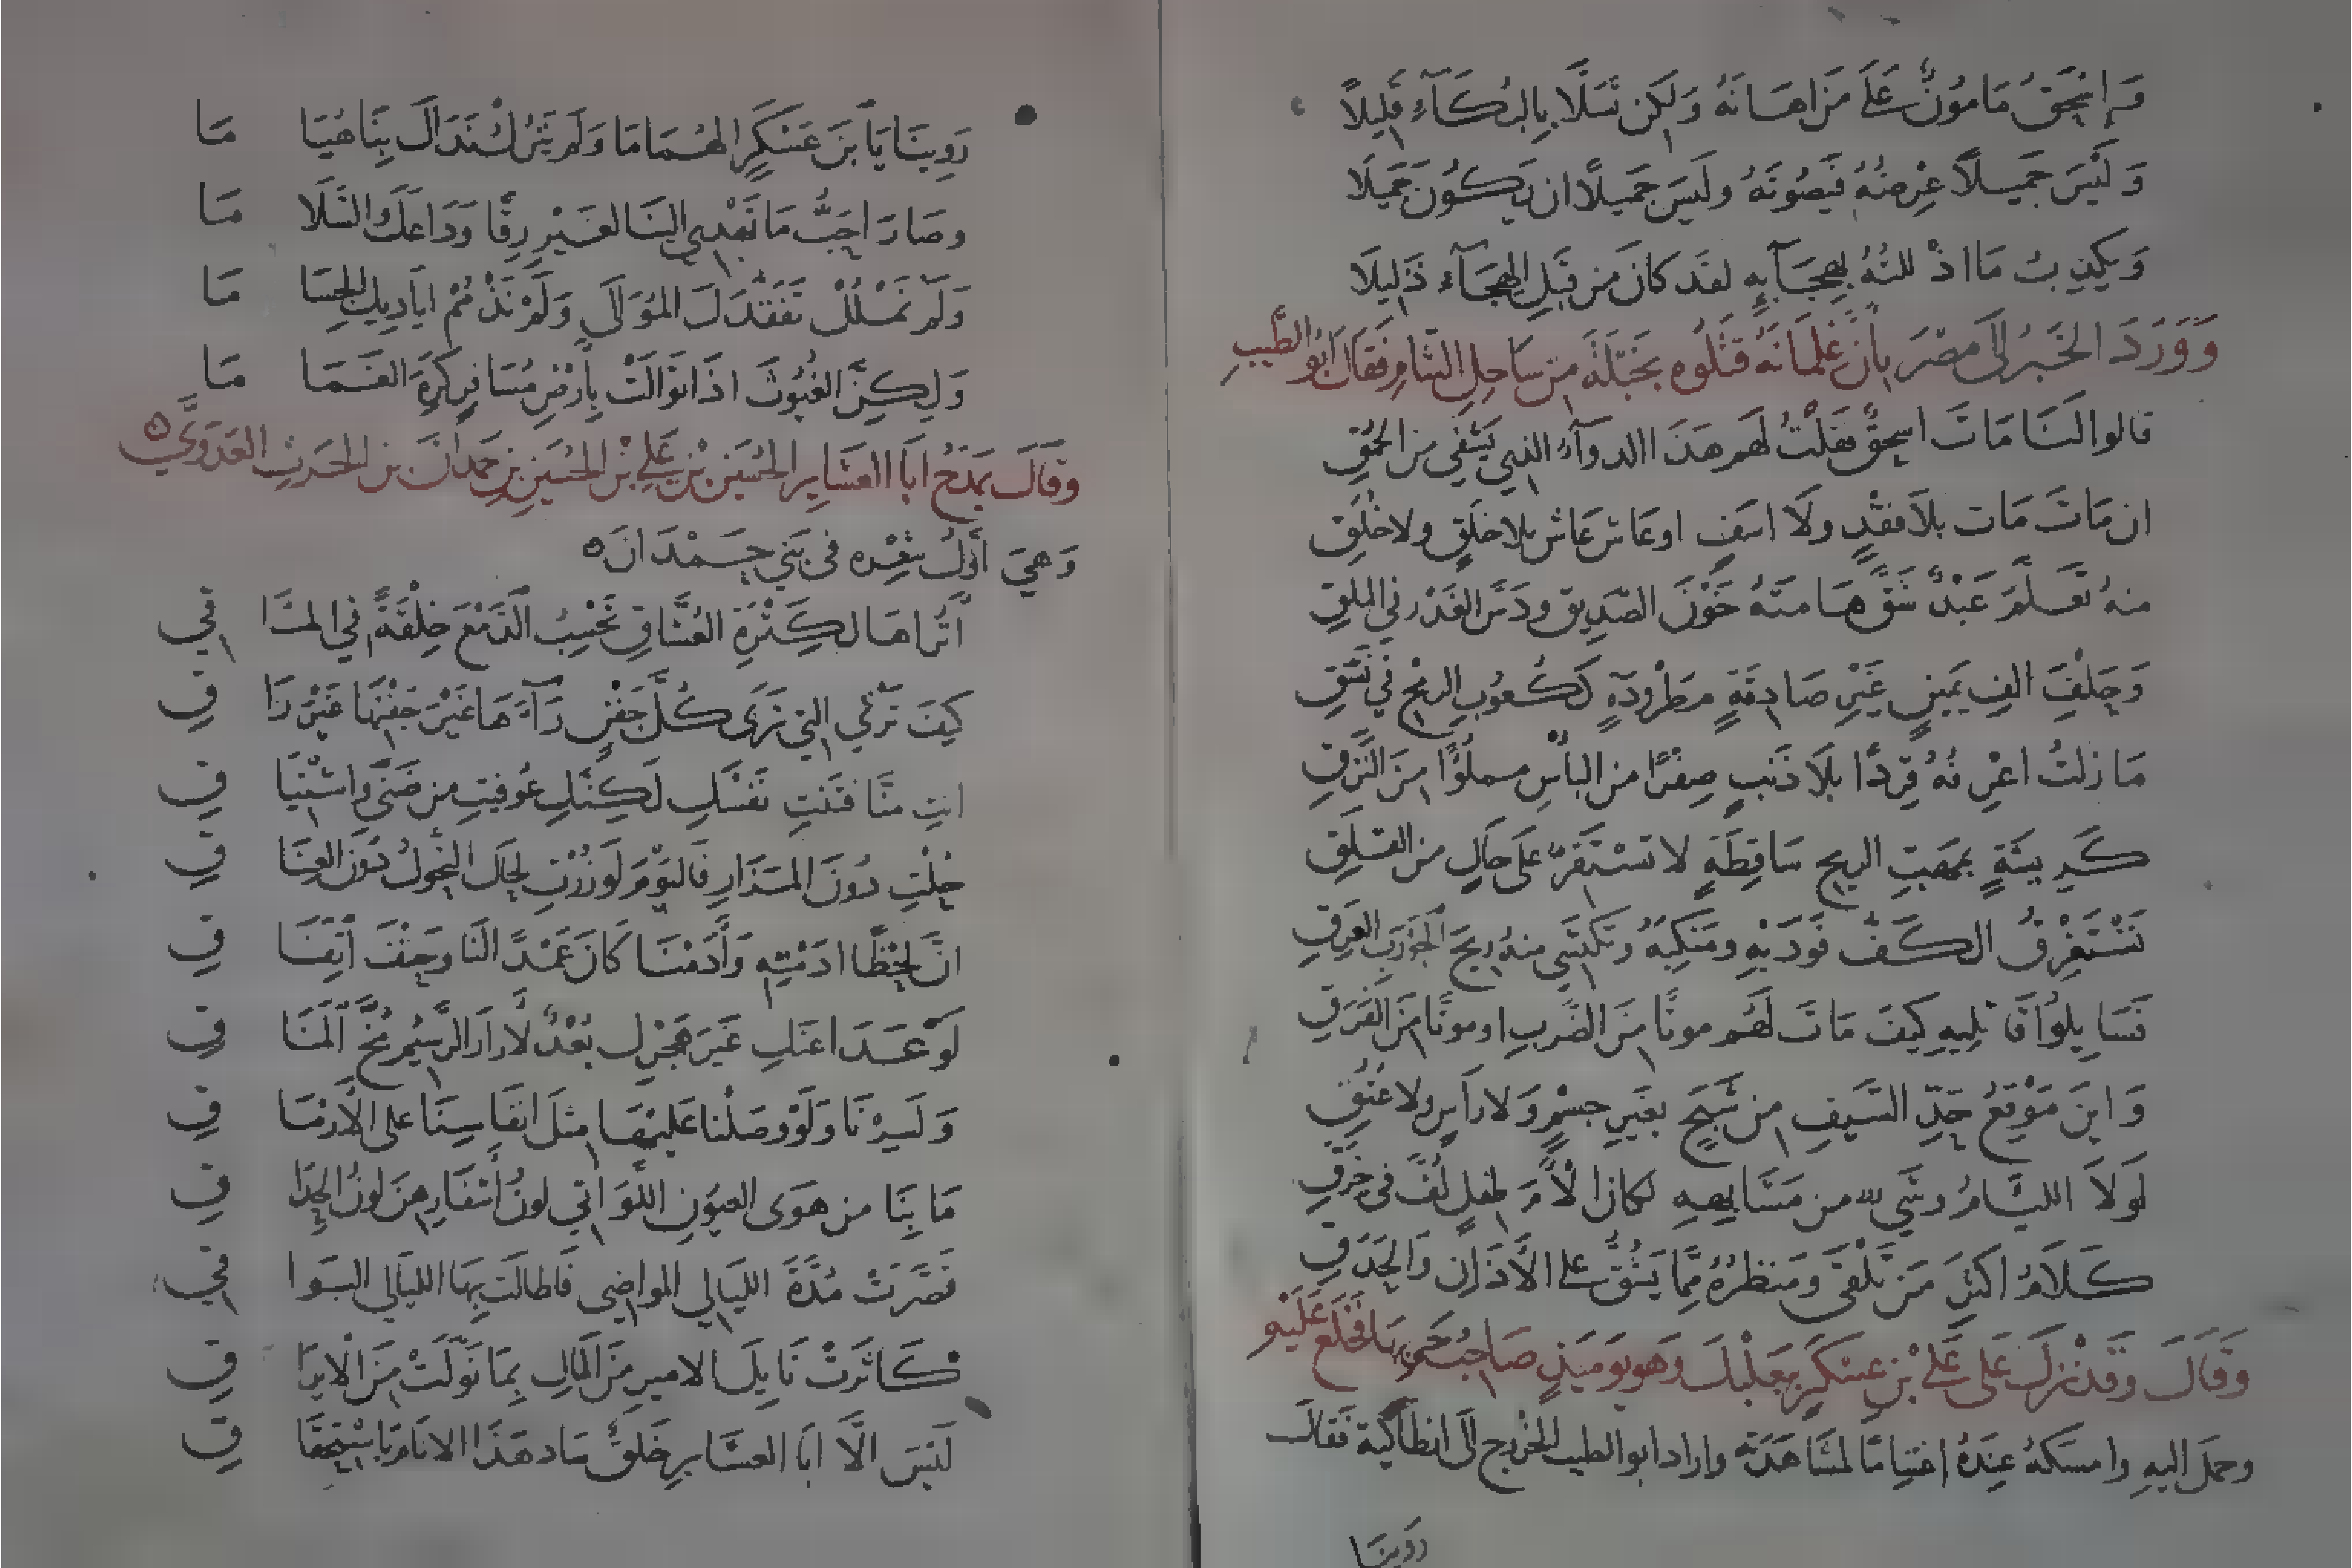 وَإِسْحَقُ مَامُونٌ عَلَى مَن اهَانَهُ وَلَكِن تَسَلَّا بِالبُكَآءِ قَلِيلًا
وَلَيْسَ جَمِيلًا عِرْضُهُ فَيَصُونَهُ ولَيسَ جَمِيلًا ان يَكُونَ جَمِيلَا
وَيَكْذِبُ مَا اذْلَلْتُهُ بِهِجَآيِهِ لقَد كَانَ مِن قَبْلِ الهِجَآءِ ذَلِيلَا
وَوَرَدَ الخَبَرُ إلَى مصْرَ بأنَّ غِلمَانَهُ قَتَلُوهُ بِجَبَلَةَ مِن سَاحِلِ الشَّامِ فَقَالَ أبُو الطَّيبِ
قالوا لَنَا مَاتَ اسحقٌ فقُلْتُ لَهم هَذَا الدوَآءُ الذِي يَشْفِي مِن الحُمُقِ
ان مَاتَ مَات بلَا فَقْدٍ ولَا اسَفٍ اوعَاشَ عَاشَ بلا خَلقٍ ولا خُلُقِ
منهُ تَعَلَّمَ عَبْدٌ شَقَّ هَامَتَهُ خَوْنَ الصَّدِيق ودَسَّ الغَدْر فِي المَلَقِ
وَحَلْفَ الفِ يَمِينٍ غَيْرِ صَادِقَةٍ مَطْرُودَةٍ كَكُعُوبِ الرمْحِ فِي نَسَقِ
مَا زلتُ اعْرِفُهُ قِردًا بلَا ذَنَبٍ صِفْرًا من البأْسِ مملُوًّا مِنَ النَّزَقِ
كَرِيشَةٍ بِمَهَبِّ الريحِ سَاقِطَةٍ لا تَسْتَقِرُّ عَلَى حَالٍ من القَلَقِ
تَسْتَغْرِقُ الكَفُّ فَودَيْهِ ومَنكِبَهُ وتَكتَسِي منهُ رِيحَ الجَورَبِ العَرِقِ
فَسَايِلُوا قَاتِلِيهِ كَيفَ مَاتَ لَهُم موتًا مِنَ الضَّربِ اوموتًا مِنَ الفَرَقِ
وَاينَ مَوْقِعُ حَدِّ السَّيفِ مِن شَبَحٍ بغَيرِ جسْمٍ وَلا رَأسٍ ولا عُنُقِ
لَولَا اللِيَامُ وشَيءٌ من مَشَابِهِهِ لكان الْأَمَ طِفلٍ لُفَّ فى خِرَقِ
كَلَامُ اكثَرِ مَن تَلْقَى ومَنظَرُهُ مِمَّا يَشُقُّ عَلَى الأَذَانِ وَالحَدَقِ
وَقَالَ وَقَدْ نَزَلَ عَلَى عَلِيّ بْنِ عَسْكَرٍ بِبَعلَبَكَّ وَهو يَومَيذٍ صَاحِبُ حَربِهَا فَخَلَعَ عَلَيْهِ
وحَملَ اليهِ وامسَكَهُ عِندَهُ اغتِنامًا لمشَاهَدَتِهِ واراد ابو الطيب الخُرُوج إلَى انطَاكية فَقَالَ
رَوِينَا
رَوِينَا يَا بْنَ عَسْكَرٍ الهُمَامَا وَلَم يَتْرُكْ نَدَاكَ بِنَا هُيَامَا
وصَارَ احَبُّ مَا تَهْدِي الينَا لغَيْرِ رِقًا وَدَاعَكَ والسَّلَامَا
وَلَمْ نَمْلُلْ تَفَقُّدَكَ المُوَالَى وَلَمْ نَذْمُمْ ايَادِيكَ الجِسَامَا
وَلكِنَّ الغُيُوثَ اذَا تَوَالَتْ بِأَرْضِ مُسَافِرٍ كَرِهَ الغَمَامَا
وَقَالَ يَمْدَحُ ابَا العشَايِر الحُسَين بْن عَلِي بْن الحُسَينِ بنِ حَمدَانَ بن الحَرثِ العَدَوِيَّ ه
وَهِيَ أَوَّلُ شِعْرِه فى بَنِي حَمْدَانَ ه
أَتُرَاهَا لكَثْرَةِ العُشَّاقِ تَحْسِبُ الدَّمْعَ خِلْقَةً فِي المَاقِي
كَيفَ تَرْثِي التِي تَرَى كُلَّ جَفْنٍ رَآءَهَا غَيْرَ جَفْنِهَا غَيْرَ رَاقِ
انتِ منَّا فَتَنتِ نَفْسَكِ لَكِنَّكِ عُوفيتِ من ضَنًى وَاشْتِيَاقِ
حُلْتِ دُونَ المَزَارِ فَاليَوْمَ لَو زُرْتِ لحَالَ النُّحُولُ دُونَ العِنَاقِ
انَّ لَحْظًا ادَمْتِهِ وَأَدَمْنَا كَانَ عَمْدًا لَنَا وحَتْفَ اتِّفَاقِ
لَوْ عَدَا عَنكِ غَيرَ هَجْرِكِ بُعْدٌ لَأَرَارَ الرَّسِيمُ مُخَّ المَنَاقِي
وَلَسِرْنَا وَلَوْ وصَلْنا عَلَيْهَا مِثلَ انفَاسِنَا على الأَرْمَاقِ
مَا بِنَا من هَوَى العيُونِ اللَّوَاتِي لَونُ أَشْفَارِهِنَّ لَونُ الحِدَاقِ
قَصَّرَتْ مُدَّةَ الليَالي المواضِى فَاطالَت بِهَا الليَالي البَوَاقِي
كَاثَرَتْ نَايِلَ الامِيرِ مِنَ المَالِ بِمَا نَوَّلَتْ مِنَ الايرَاقِ
لَيْسَ الَّا ابَا العشَايِرِ خَلقٌ سَادَ هَذَا الانَامَ بَاسْتِحقَاقِ